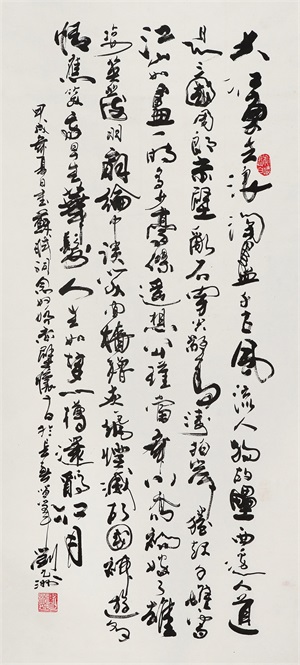 大江東去浪淘盡千古風流人物故壘西邊人道
是三國周郎赤壁亂石穿空驚濤拍岸捲起千堆雪
江山如畫一時多少豪傑遙想公瑾當年小喬初嫁了雄
姿英發羽扇綸巾談笑間檣櫓灰飛煙滅故國神遊多
情應笑我早生華髮人生如夢一樽還酹江月
甲戌年夏日書蘇軾詞念奴嬌赤壁懷古於長春